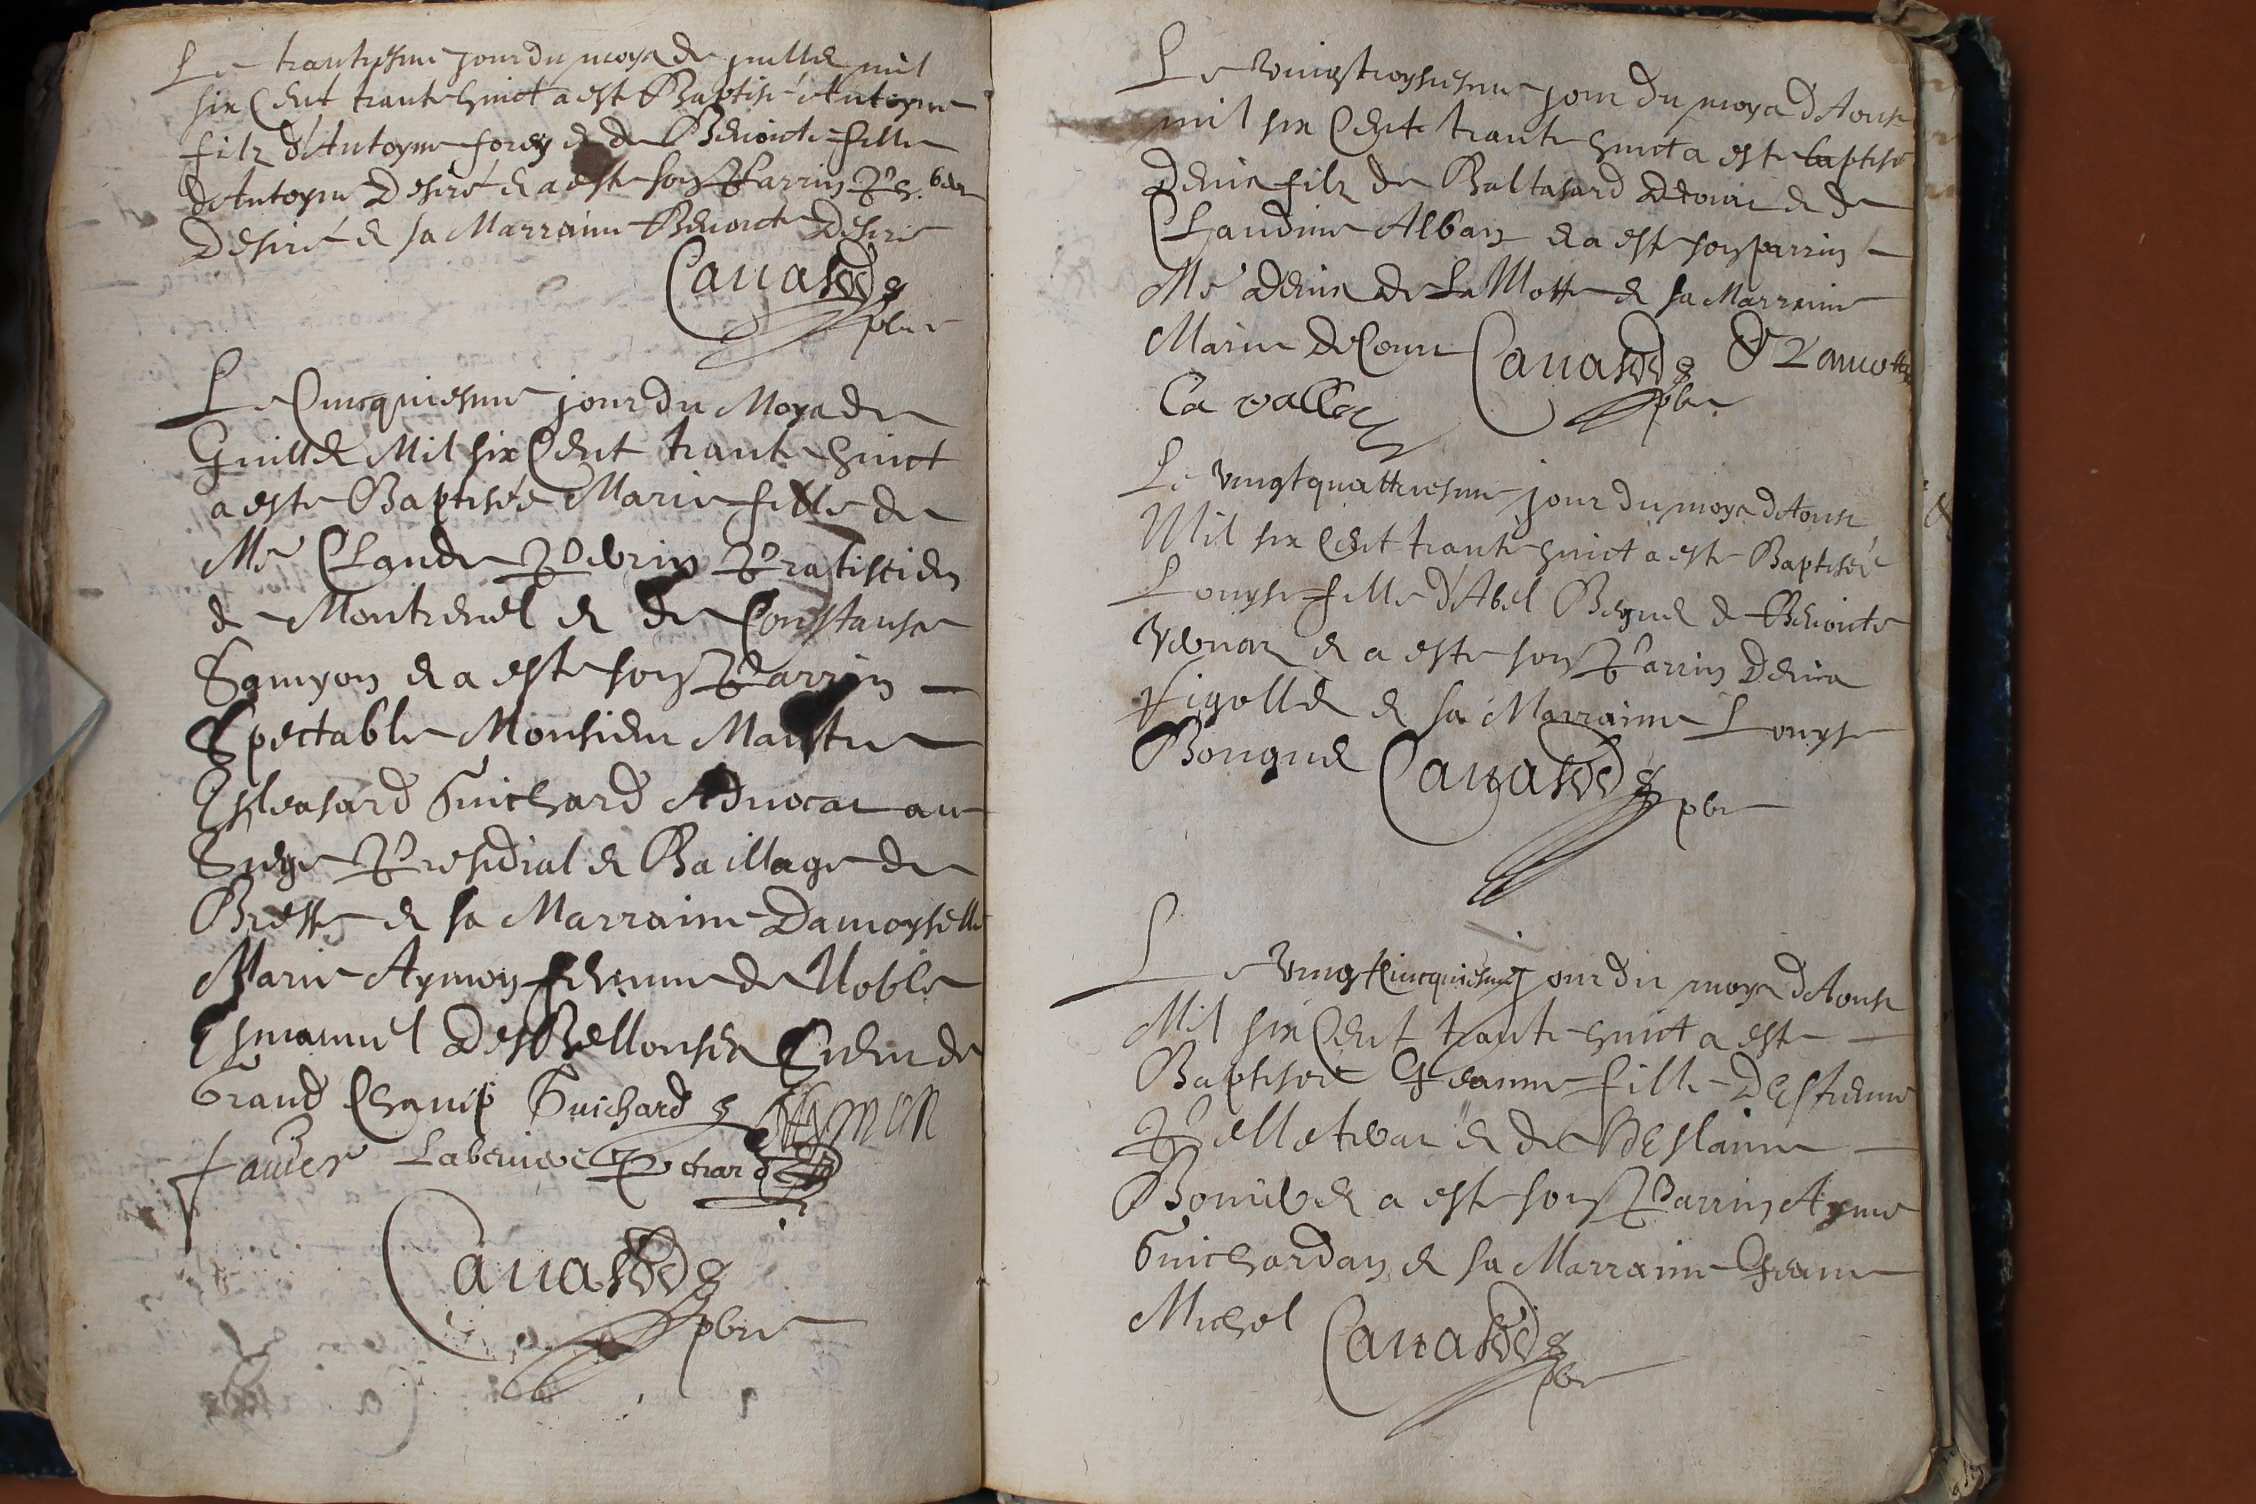 Le trantiesme jour du moys de juillet mil
six Cent trante huict a este Baptisé Antoyne
filz d'Antoyne forey et de Benoicte fille
d'Antoyne Desiré et a este son Parrin
Desiré et sa Marraine Benoicte Desiré
Cauasse
pbre
Le Cincquiesme jour du Moys de
Juillet Mil six Cent trante huict
a este Baptisée Marie fille de
Me Claude Perrin Pratiscien
de Montreuel et de Constanse
Samyon et a este son Parrin
Spectable Monsieur Maistre
Esleasard Guichard Aduocat au
Siege Presidial et Baillage de
Bresse et sa Marraine Damoyselle
Marie Aymon femme de Noble
Esmanuel Des Bellouses Sieur de
Grand Champ Guichard Aymon
fauier
Cauasse
pbre
Le vingtroysiesme jour du moys d'Aoust
mil six Cent trante huict a este baptisé
Denis filz de Baltasard Decour et de
Claudine Alban et a este son parrin
Me Denis de La Motte et sa Marraine
Marie de Cour Cauasse D Lamotte
pbre
La valle
Le vingtquattriesme jour du moys d'Aoust
Mil six Cent trante huict a este Baptisée
Louyse fille d'Abel Beguet et Benoicte
et a este son Parrin Denis
Figollet et sa Marraine Louyse
Bouguet Cauasse
pbre
Le vingtcincquiesme jour du moys d'Aoust
Mil six Cent trante huict a este
Baptisée Jeanne fille d'Estienne
Pelletier et de Eslaine
a este son Parrin Ayme
Guichardan et sa Marraine Jeanne
Michel Cauasse
pbre